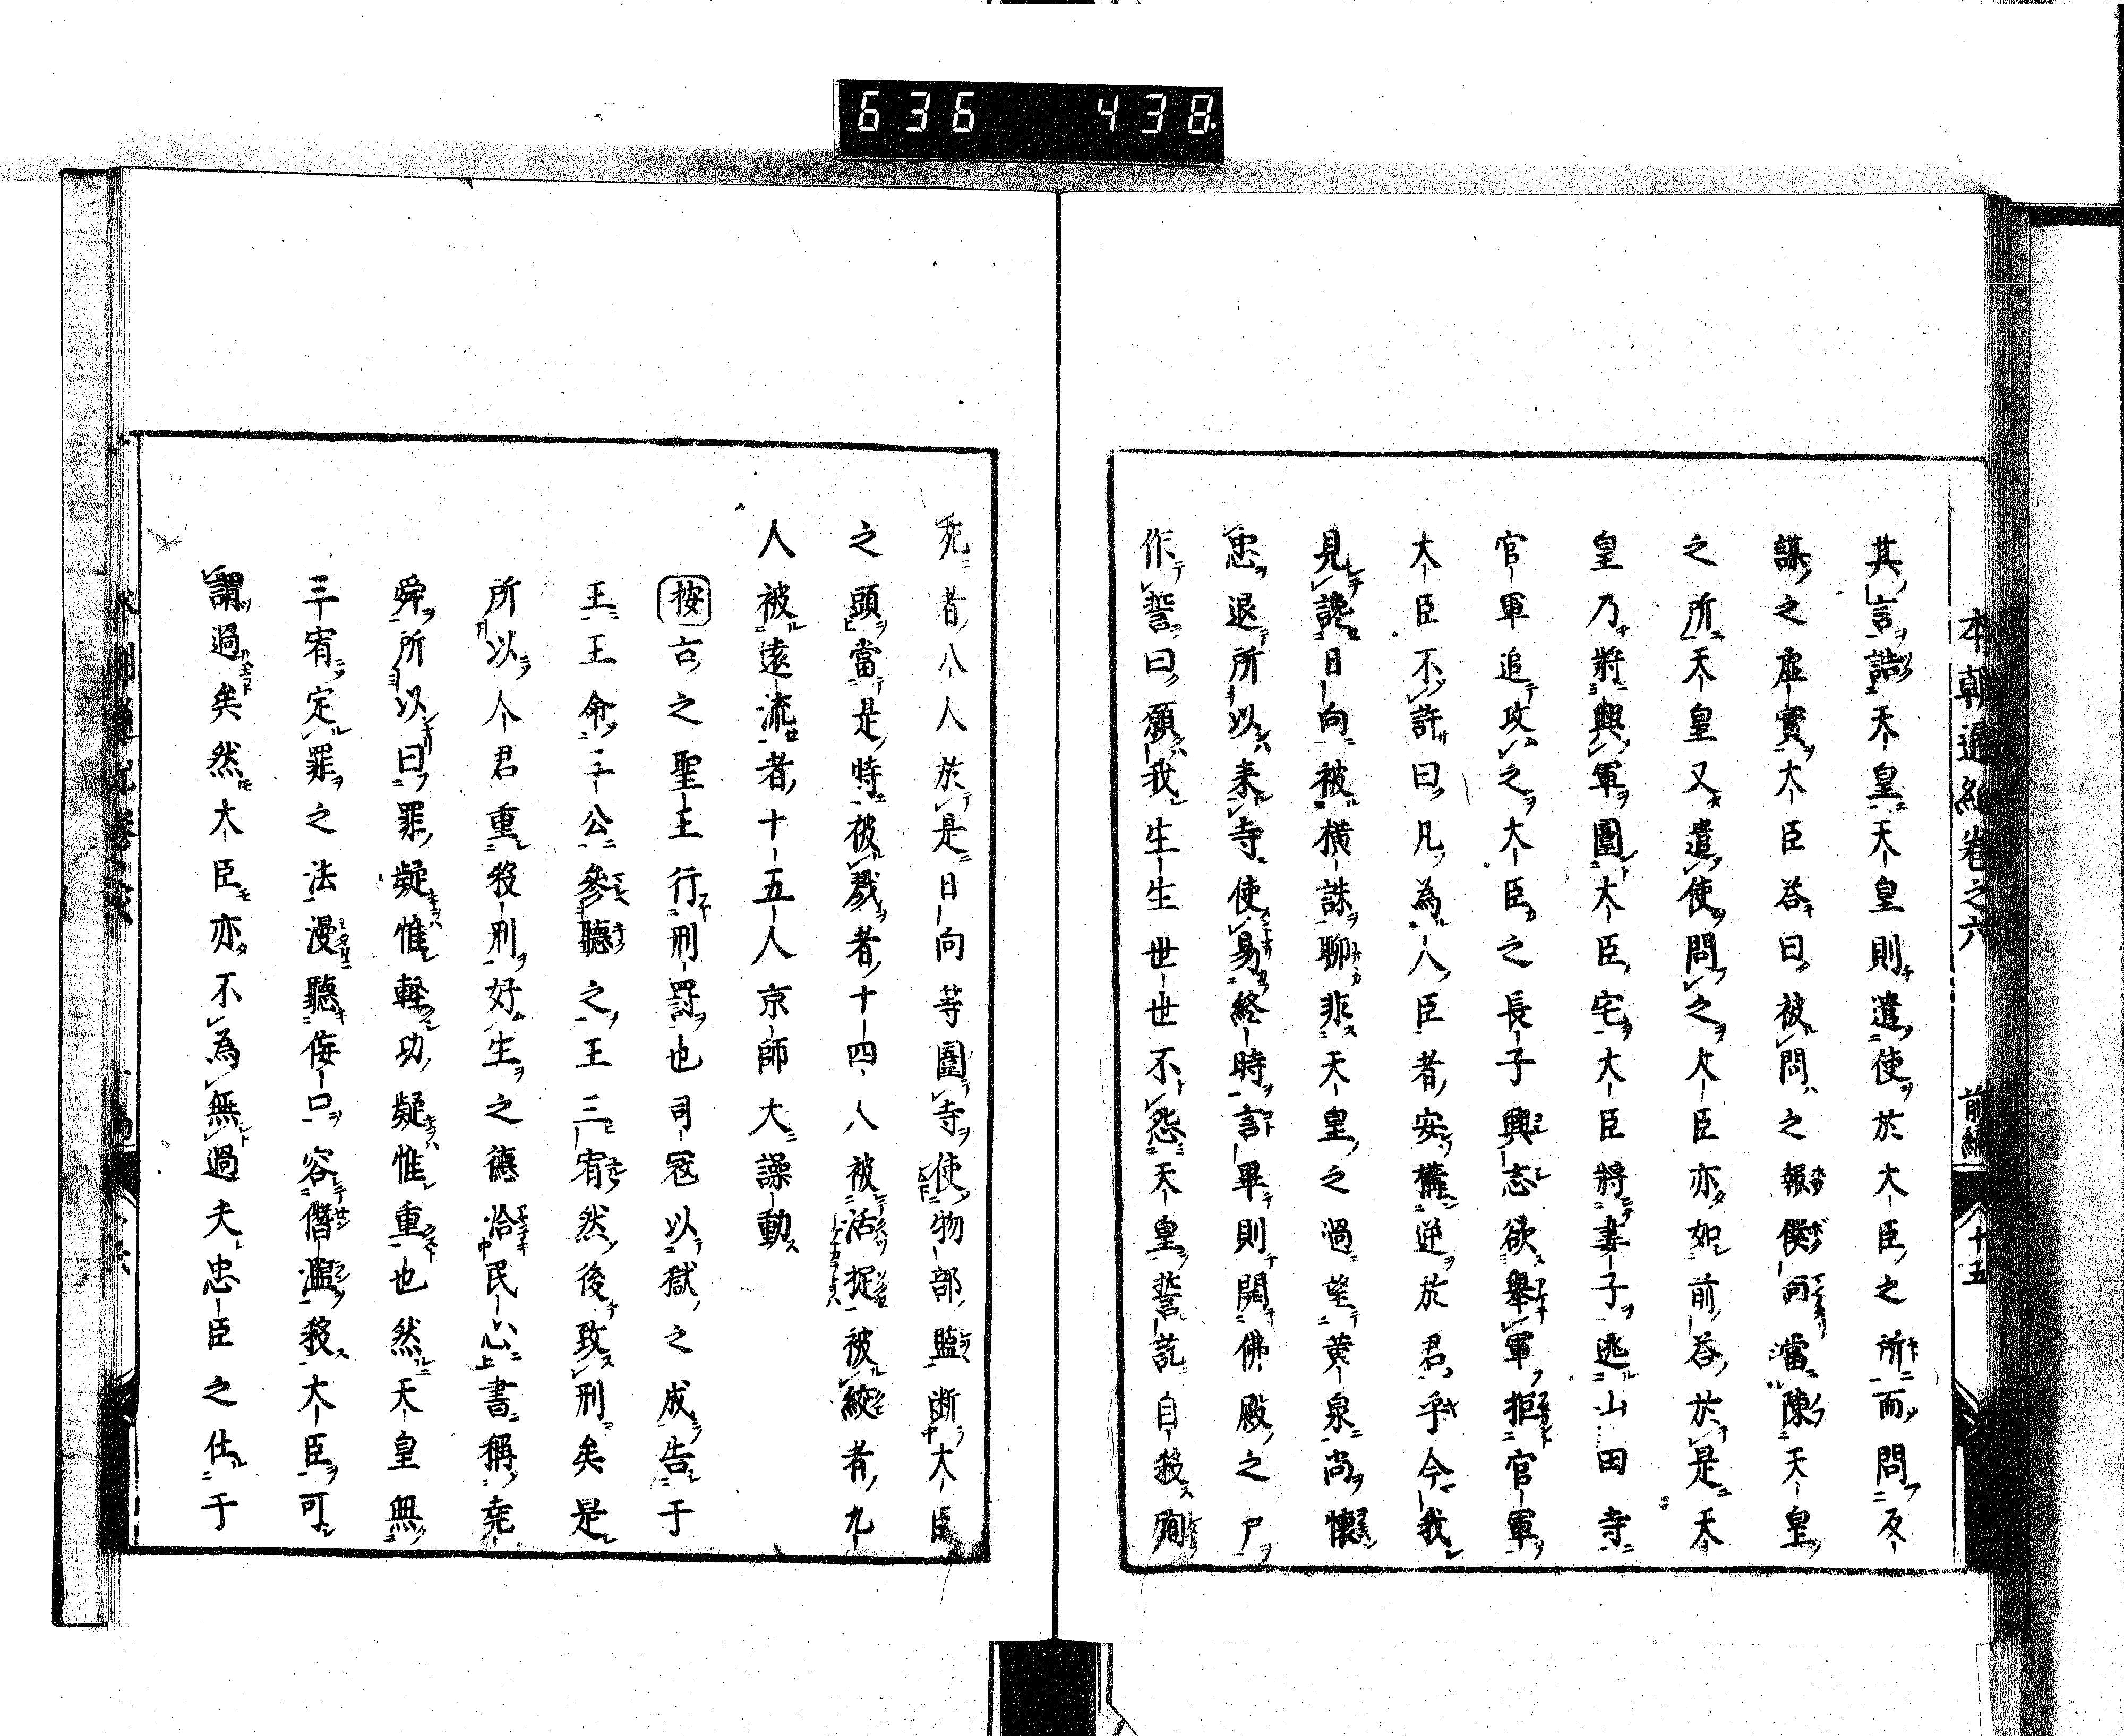 636 438
本朝通紀卷之六 前編 十五
其言詣天皇天皇則遣使於大臣之所而問反
謀之虛實大臣荅曰被問之報僕面當陳天皇
之所天皇又遣使問之大臣亦如前荅於是天
皇乃將興軍圍大臣宅大臣將妻子逃山田寺
官軍追攻之大臣之長子興志欲舉軍拒官軍
大臣不許曰凡為人臣者安構逆於君乎今我
見讒日向被橫誅聊非天皇之過望黃泉尚懷
忠退所以來寺使易終時言畢則開佛殿之戸
作誓曰願我生生世世不怨天皇誓訖自殺殉
死者八人於是日向等圍寺使物部監断大臣
之頭當是時被戮者十四人被活捉被絞者九
人被遠流者十五人京師大譟動
按古之聖主行刑罸也司冦以獄之成告于
王王命三公參聽之王三宥然後致刑矣是
所以人君重殺刑好生之德洽民心書稱堯
舜所以曰罪疑惟輕功疑惟重也然天皇無
三宥定罪之法漫聽侮口容僭濫殺大臣可
謂過矣然大臣亦不為無過夫忠臣之仕于